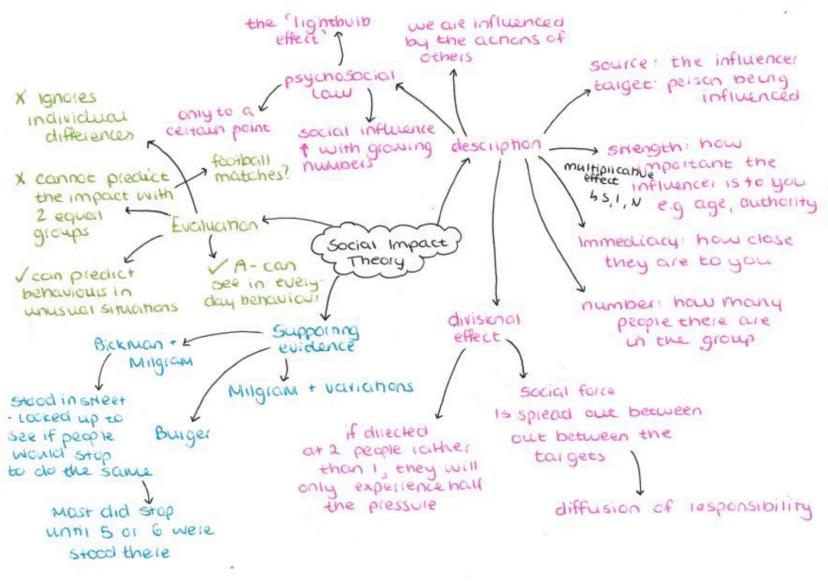 the 'lightbulb
effect'
we are influenced
by the actions of
others
psychosocial
law
only to a
certain point
social influence
↑ with growing
numbers
description
source: the influencer
target: person being
influenced
strength: how
important the
influencer is to you
e.g age, authority
multiplicative
effect
↳ S, I, N
Immediacy: how close
they are to you
number: how many
people there are
in the group
X ignores
individual
differences
X cannot predict
the impact with
2 equal
groups
football
matches?
Evaluation
✓ can predict
behaviours in
unusual situations
✓ A- can
see in every-
day behaviour
Social Impact
Theory
Supporting
evidence
Bickman +
Milgram
stood in street
- looked up to
see if people
would stop
to do the same
Most did stop
until 5 or 6 were
stood there
Burger
Milgram + variations
divisional
effect
if directed
at 2 people rather
than 1, they will
only experience half
the pressure
social force
is spread out between
out between the
targets
diffusion of responsibility